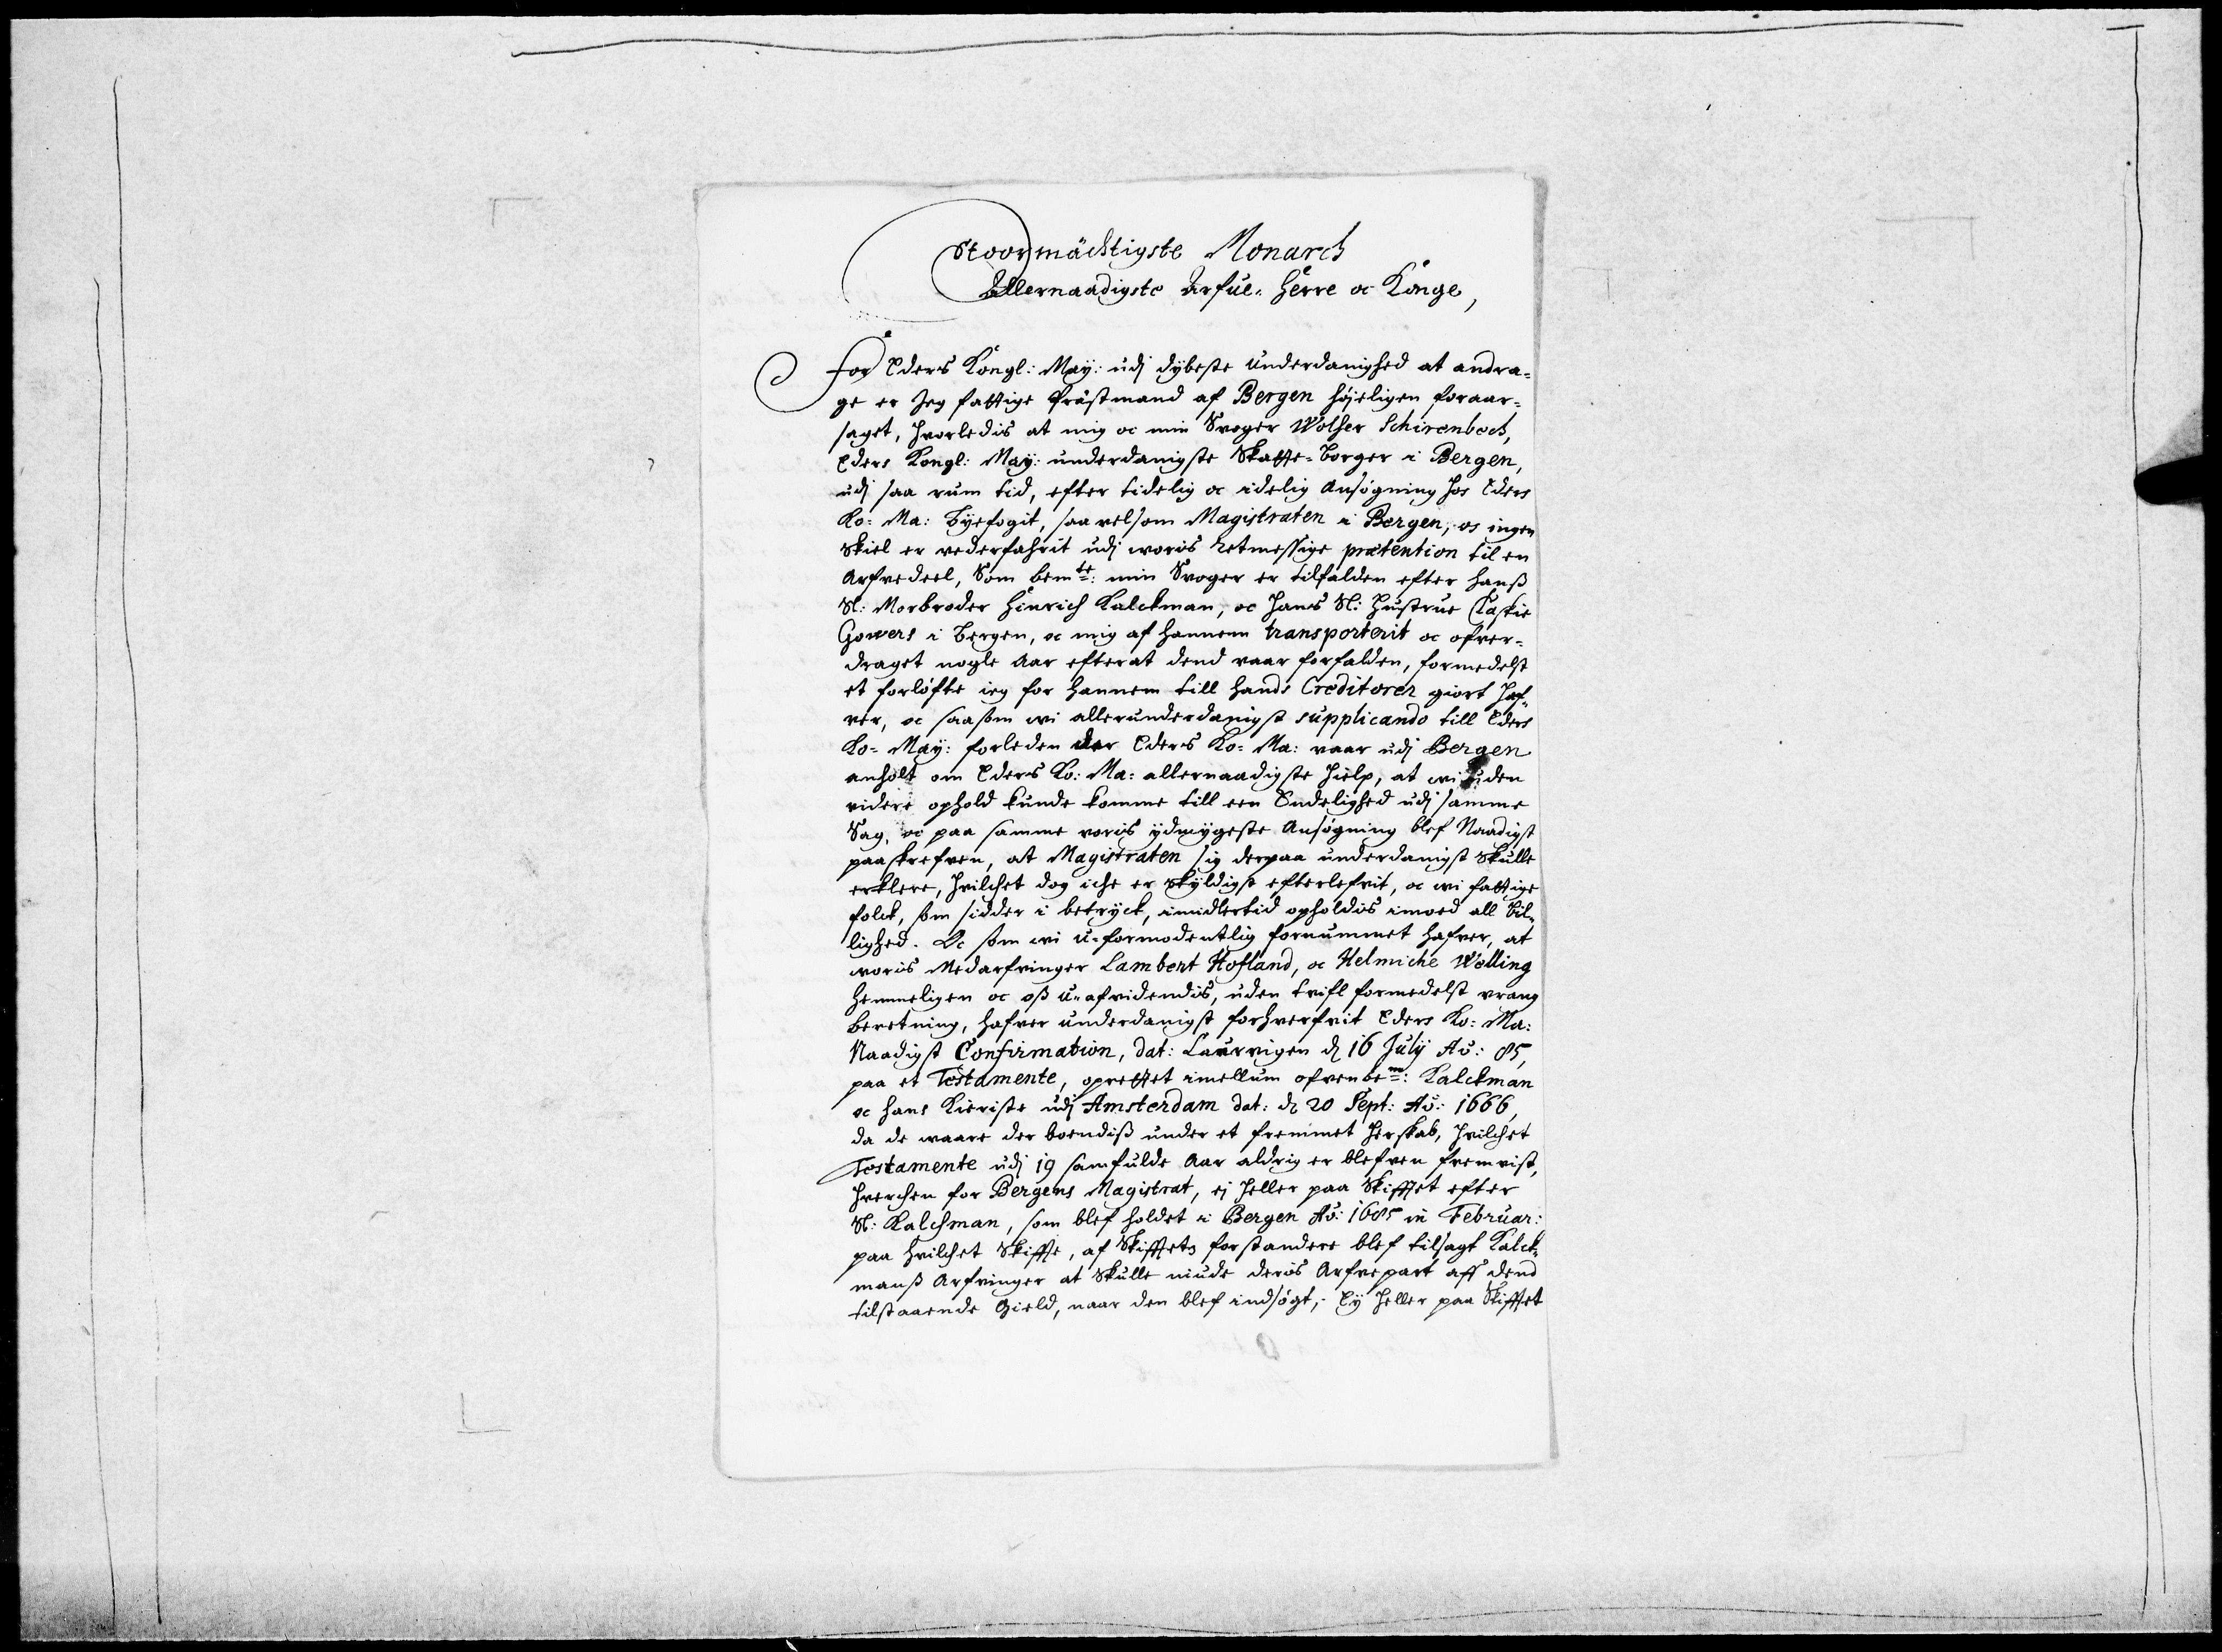 Stoormächtigste Monarch
Allernaadigste Arfue-Herre oc Konge,
For Eders Kongl: May: udj dybeste underdanighed at andra=
ge er Jeg fattige Præstmand af Bergen höjeligen foraar=
saget, hvorledis at mig oc min Svoger Wolher Schirenbech,
Eders Kongl: May: underdanigste Skatte-Borger i Bergen,
udj saa rum tid, efter tidelig oc idelig Ansögning hos Eders
Ko: Ma: Byefogit, saa velsom Magistraten i Bergen, os ingen
Skiel er vederfahrit udj woris Retmessige prætention til en
Arfvedeel, Som bemte: min Svoger er tilfalden efter Hanß
Sl: Morbroder Hinrich Kalckman, oc Hans Sl: Hustrue
Gowers i Bergen, oc mig af Hannem transporterit oc ofver=
draget nogle Aar efterat dend vaar forfalden, formedelst
et forlöfte ieg for Hannem till Hands Creditorer giort Haf=
ver, oc saasom wi allerunderdanigst supplicando till Eders
Ko: May: forleden der Eders Ko: Ma: vaar udj Bergen
anholt om Eders Ko: Ma: allernaadigste Hielp, at wi uden
videre ophold kunde komme till een Endelighed udj samme
Sag, oc paa samme voris ydmygeste Ansögning blef Naadigst
paaskrefven, at Magistraten sig derpaa underdanigst Skulle
erklere, hvilchet dog iche er skyldigst efterlefvit, oc wi fattige
folck, som sidder i betryck, imidlertid opholdis imoed all Bil=
lighed. Oc som wi u-formodentlig fornummet hafver, at
woris Medarfvinger Lambert Hofland, oc Helmiche Welling
Hemmeligen oc oß u-afvidendis, uden tvifl formedelst vrang
beretning, hafver underdanigst forhverfvit Eders Ko: Ma:
Naadigst Confirmation, dat: Laurvigen d 16 July Ao: 85,
paa et Testamente, oprettet imellum ofvenbem: Kalckman
oc hans Kieriste udj Amsterdam dat: d 20 Sept: Ao: 1666,
da de waare der boendiß under et fremmet Herskab, hvilchet
Testamente udj 19 samfulde Aar aldrig er blefven fremvist,
hverchen for Bergens Magistrat, ej heller paa Skifftet efter
Sl: Kalchman, som blef holdet i Bergen Ao: 1685 in Februar:
paa hvilchet Skiffte, af Skifftets forstandere blef tilsagt Kalck=
manß Arfvinger at Skulle niude deris Arfvepart aff dend
tilstaaende Gield, naar den blef indsögt, Ey heller paa Skifftet